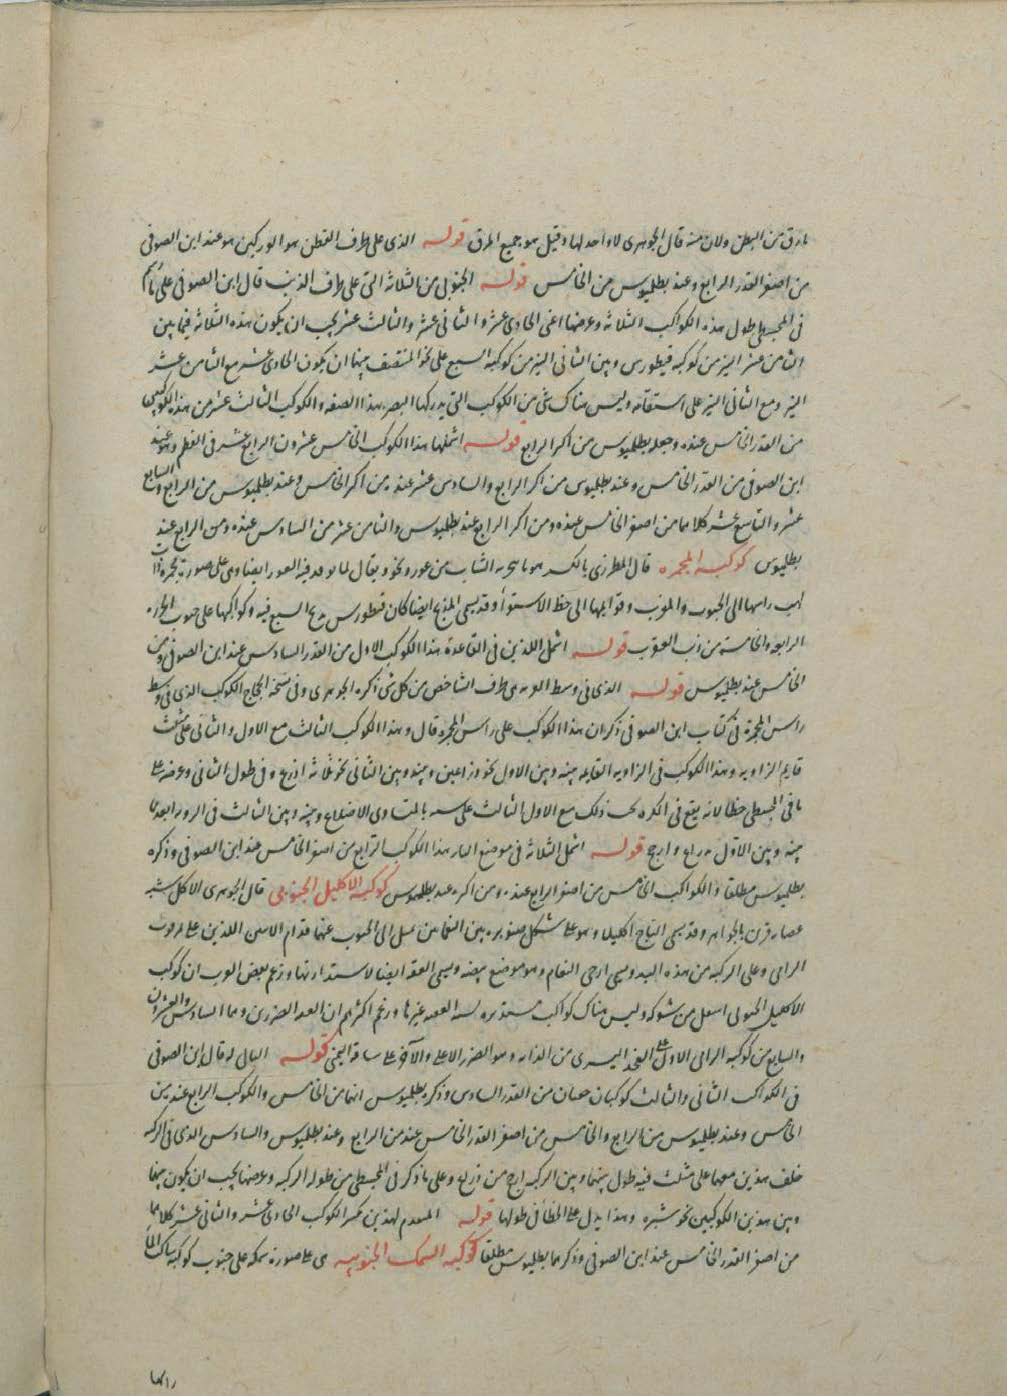 مارق من البطن ولان منه قال الجوهرى لا واحد لها وقيل هو جميع المرق قوله الذى على طرف القطن هو الوركين هو عند ابن الصوفى
من اصغر القدر الرابع وعند بطلميوس من الخامس قوله الجنوبى من الثلاثة التى على طرف الذنب قال ابن الصوفى على ما رسم
فى المجسطى طول هذه الكواكب الثلاثة وعرضها اعنى الحادى عشر والثانى عشر والثالث عشر يجب ان يكون هذه الثلاثة فيما بين
الثامن عشر النير من كوكبة قيطورس وبين الثانى النير من كوكبة السبع على نحو المنتصف بينهما ان يكون الحادى عشر مع الثامن عشر
النير ومع الثانى النير على استقامة وليس هناك شئ من الكواكب التى يدركها البصر بهذا الصفه والكوكب الثالث عشر من هذه الكوكبة
من القدر الخامس عنده وجعله بطلميوس من اكبر الرابع قوله اشملها هذا الكوكب الخامس عشر ون الرابع عشر فى العظم وهو عند
ابن الصوفى من القدر الخامس وعند بطلميوس من اكبر الرابع والسادس عشر عنده من اكبر الخامس وعند بطلميوس من الرابع والسابع
عشر والتاسع عشر كلاهما من اصغر الخامس عنده ومن اكبر الرابع عند بطلميوس والثامن عشر من السادس عنده ومن الرابع عند
بطلميوس كوكبة المجمرة قال المطرزى بالكسر هو ما يبخر به الثياب من عود ونحوه ويقال لما يوقد فيه العود ايضا وهى على صورة مجمرة ذات
لهب راسها الى الجنوب والمغرب وقوائمها الى خط الاستواء وقد يسمى المذبح ايضا كان قنطورس يذبح السبع فيه وكواكبها على جنوب الخرزة
الرابعة والخامسة من ذنب العقرب قوله اشمل اللذين فى القاعدة هذا الكوكب الاول من القدر السادس عند ابن الصوفى ومن
الخامس عند بطلميوس قوله الذى فى وسط هى طرف الشاخص من كل شئ ذكره الجوهرى وفى نسخة الحجاج الكوكب الذى فى وسط
راس المجمرة فى كتاب ابن الصوفى ذكر ان هذا الكوكب على راس المجمرة قال وهذا الكوكب الثالث مع الاول والثانى على مثلث
قايم الزاوية وهذا الكوكب فى الزاوية القايمة بينه وبين الاول نحو ذراعين وبينه وبين الثانى نحو ثلاثة اذرع وفى طول الثانى وعرضه على
ما فى المجسطى خطا لانه يقع فى الكرة بحسب ذلك مع الاول والثالث على المتساوى الاضلاع وبينه وبين الثالث فى الرؤية ابعد مما
بينه وبين الاول ذراع وارجح قوله اشمل الثلاثة فى موضع النار هذا الكوكب الرابع من اصغر الخامس عند ابن الصوفى وذكره
بطلميوس مطلقا والكوكب الخامس من اصغر الرابع عنده ومن اكبره عند بطلميوس كوكبة الاكليل الجنوبى قال الجوهرى الاكليل شبه
عصابة تزين بالجواهر وقد يسمى التاج اكليلا وهو على شكل صنوبرى بين النعامين يميل الى الجنوب عنهما قدام الاثنين اللذين على عرقوب
الرامى وعلى الركبة من هذه اليد ويسمى ادحى النعام وهو موضع بيضه ويسمى القبة ايضا لاستدارتها وزعم بعض العرب ان كوكب
الاكليل الجنوبى اسفل من شوله وليس هناك كواكب مستديرة غيرها وزعم اكثرهم ان الصردين وهما السادس والعشرون
والسابع من كوكبة الرامى الاول على الفخذ اليسرى من الدابة وهو الصرد الاعلى والآخر على ساقه اليمنى قوله التالى له قال ابن الصوفى
فى الكواكب الثانى والثالث كوكبان خفيان من القدر السادس وذكر بطلميوس انهما من الخامس والكوكب الرابع عنده من
الخامس وعند بطلميوس من الرابع والخامس من اصغر القدر الخامس عنده من الرابع وعند بطلميوس والسادس الذى فى الركبة
خلف هذين معهما على مثلث فيه طول بينهما وبين الركبة ارجح من ذراع وعلى ما ذكر فى المجسطى من طوله الركبة وعرضها يجب ان يكون بينها
وبين هذين الكوكبين نحو شبره وهذا يدل على الخطا فى طولها قوله المتقدم لهذين الكوكب الحادى عشر والثانى عشر كلاهما
من اصغر القدر الخامس عند ابن الصوفى وذكرهما بطلميوس مطلقا كوكبة السمك الجنوبية هى على صورة سمكة على جنوب كوكبة ساكب الماء
راسها